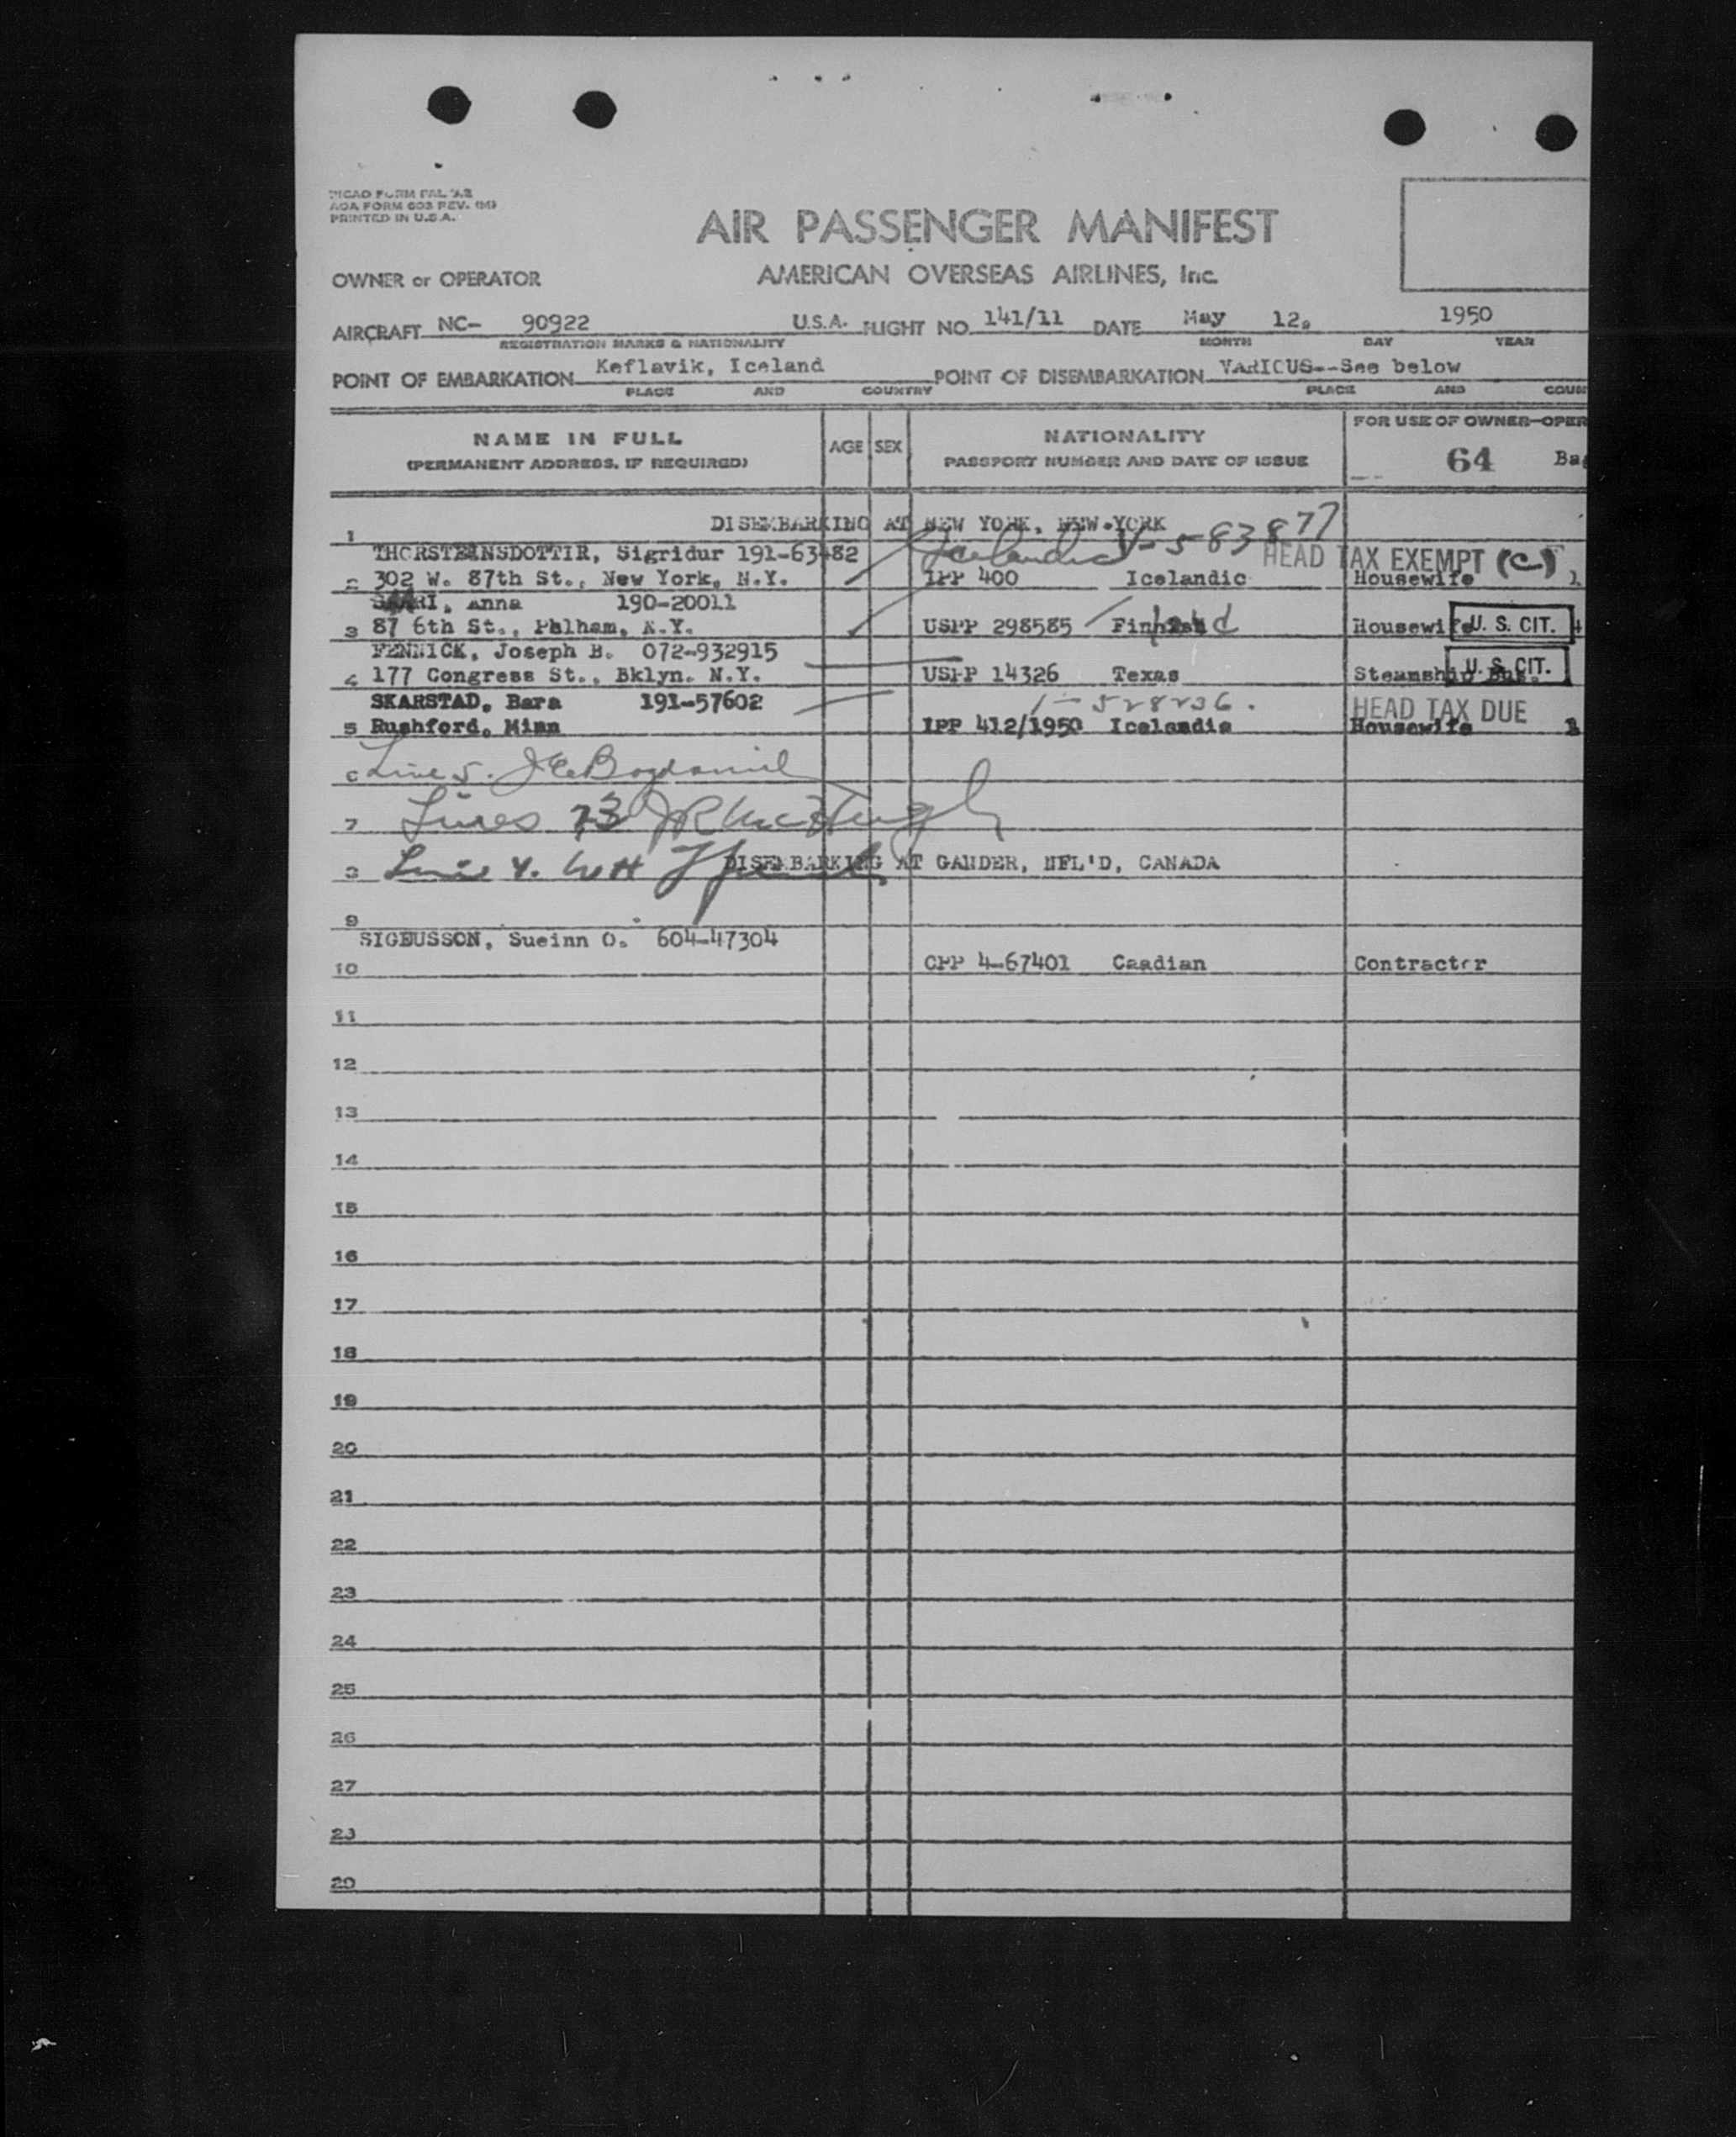 AOA FORM 603 REV.
PRINTED IN U.S.A.
AIR PASSENGER MANIFEST
OWNER or OPERATOR AMERICAN OVERSEAS AIRLINES, Inc.
AIRCRAFT NC- 90922 U.S.A. FLIGHT NO. 141/11 DATE May 12, 1950
REGISTRATION MARKS & NATIONALITY MONTH DAY YEAR
POINT OF EMBARKATION Keflavik, Iceland POINT OF DISEMBARKATION VARIOUS--See below
PLACE AND COUNTRY PLACE AND COUN
NAME IN FULL AGE SEX NATIONALITY FOR USE OF OWNER-OPER
(PERMANENT ADDRESS, IF REQUIRED) PASSPORT NUMBER AND DATE OF ISSUE 64 Ba
DISEMBARKING AT NEW YORK, NEW YORK
1 Icelandic V-583877
THORSTEINSDOTTIR, Sigridur 191-63482 HEAD TAX EXEMPT (C)
2 302 W. 87th St., New York, N.Y. IPP 400 Icelandic Housewife 1
Anna 190-20011
3 87 6th St., Pelham, N.Y. USPP 298585 Housewife U. S. CIT.
FENNICK, Joseph B. 072-932915
4 177 Congress St., Bklyn. N.Y. USPP 14326 Texas Steamship Bus. U. S. CIT.
SKARSTAD, Bara 191-57602 HEAD TAX DUE
5 Rushford, Minn IPP 412/1950 Icelandic Housewife 1
6 Line 5.
7 Lines
8 DISEMBARKING AT GANDER, NFL'D, CANADA
9
SIGFUSSON, Sueinn O. 604-47304
10 CPP 4-67401 Caadian Contractor
11
12
13
14
15
16
17
18
19
20
21
22
23
24
25
26
27
28
29